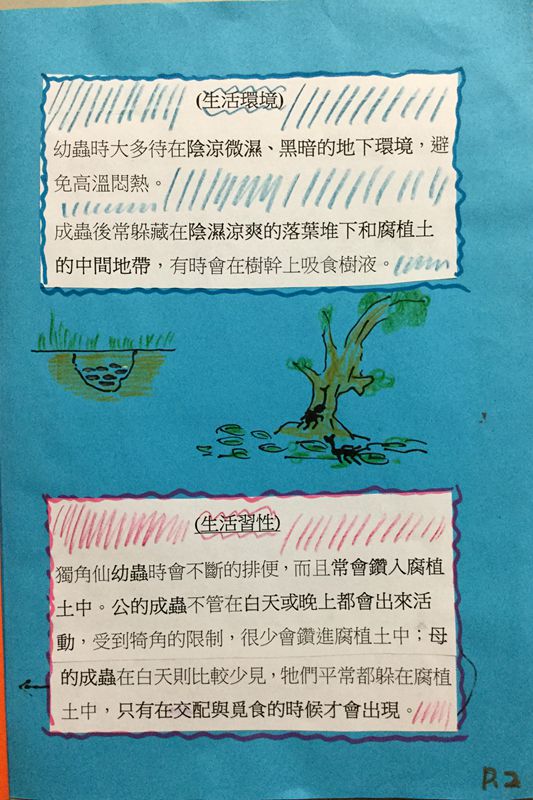 (生活環境)
幼蟲時大多待在陰涼微濕、黑暗的地下環境，避
免高溫悶熱。
成蟲後常躲藏在陰濕涼爽的落葉堆下和腐植土
的中間地帶，有時會在樹幹上吸食樹液。
(生活習性)
獨角仙幼蟲時會不斷的排便，而且常會鑽入腐植
土中。公的成蟲不管在白天或晚上都會出來活
動，受到犄角的限制，很少會鑽進腐植土中；母
的成蟲在白天則比較少見，牠們平常都躲在腐植
土中，只有在交配與覓食的時候才會出現。
P.2